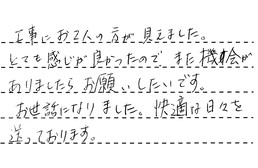 工事にお2人の方が見えました。
とても感じが良かったので、また機会が
ありましたらお願いしたいです。
お世話になりました。快適な日々を
送っております。